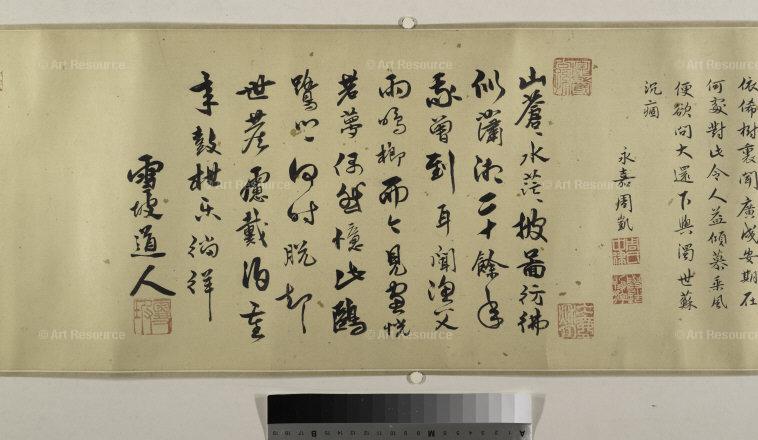 依俙樹裏聞廣成安期在
何處對此令人益傾慕乘風
便欲問大還下與濁世蘇
沉痼
永嘉周凱
山蒼〻水茫〻披圖彷彿
似瀟湘二十餘年
我曾到耳聞漁父
雨鳴榔而今見畫恍
若夢偶然憶此鷗
鷺〻何時脫却
世塵慮戴
鼓枻
雪坡道人
© Art Resource
© Art Resource
© Art Resource
© Art Resource
© Art Resource
© Art Resource
© Art Resource
© Art Resource
© Art Resource